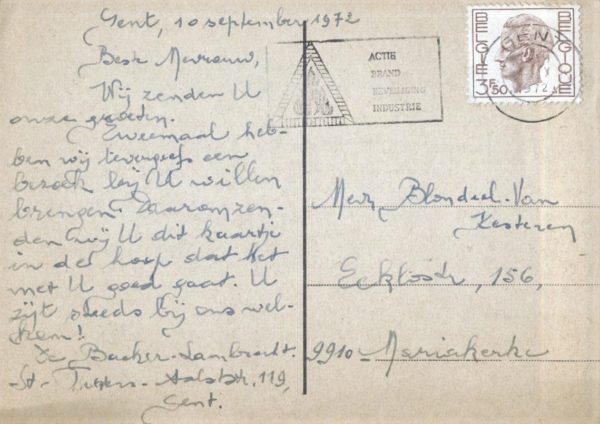 Gent, 10 september 1972
Beste Mevrouw,
Wij zenden U
onze groeten.
Tweemaal heb-
ben wij tevergeefs een
bezoek bij U willen
brengen. Daarom zen-
den wij U dit kaartje
in de hoop dat het
met U goed gaat. U
zijt steeds bij ons wel-
kom!
De Backer-Lambrecht.
St-Aalststr. 119,
Gent.
ACTIE
BRAND
BEVEILIGING
INDUSTRIE
BELGIE
BELGIQUE
3F50
GENT
1972
Mevr. Blondeel-Van
Kesteren
Eeklostr, 156,
9910-Mariakerke